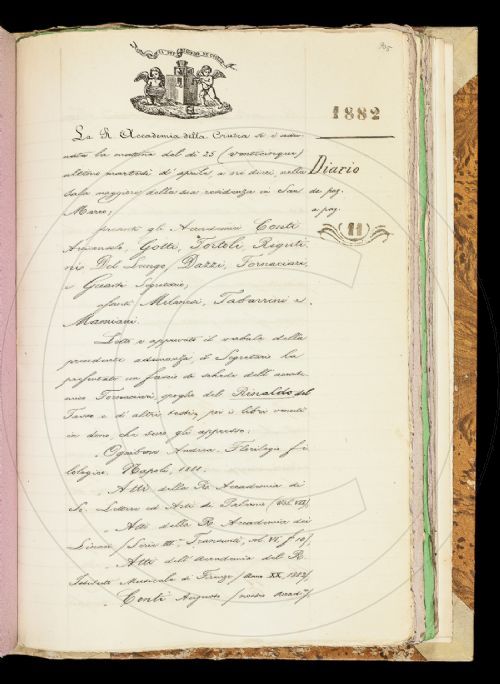 705
1882
Diario
da pag.
a pag.
11
La R. Accademia della Crusca si è adu-
nata la mattina del dì 25 (venticinque)
ultimo martedì d'aprile, a ore dieci, nella
sala maggiore della sua residenza in San
Marco;
presenti gli Accademici Conti
Arciconsolo, Gotti, Tortoli, Riguti-
ni, Del Lungo, Dazzi, Fornaciari,
e Guasti Segretario;
assenti Milanesi, Tabarrini e
Mamiani.
Letto e approvato il verbale della
precedente adunanza, il Segretario ha
presentato un fascio di schede dell'accade-
mico Fornaciari, spoglio del Rinaldo del
Tasso e di altri testi; poi i libri venuti
in dono, che sono gli appresso:
Ognibono Andrea. Florilegio fi-
lologico. Napoli, 1881.
Atti della R. Accademia di
Sc. Lettere ed Arti di Palermo (vol. VII)
Atti della R. Accademia dei
Lincei (Serie III.a Transunti, vol. VI, f. 10)
Atti dell'Accademia del R.
Istituto Musicale di Firenze (Anno XX, 1882)
Conti Augusto (nostro Accad.o)